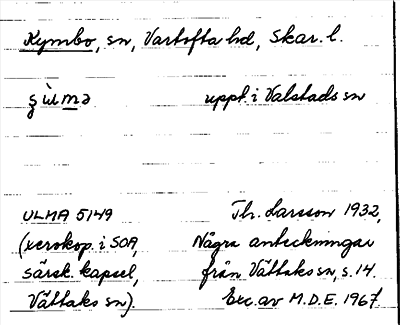 Kymbo, sn, Vartofta hd, Skar. l.
şùmə uppt. i Valstads sn
ULMA 5149 Th. Larsson 1932,
(xerokop. i SOA, Några anteckningar
särsk. kapsel, från Vättaks sn, s. 14.
Vättaks sn). Exc. av M.D.E. 1967.